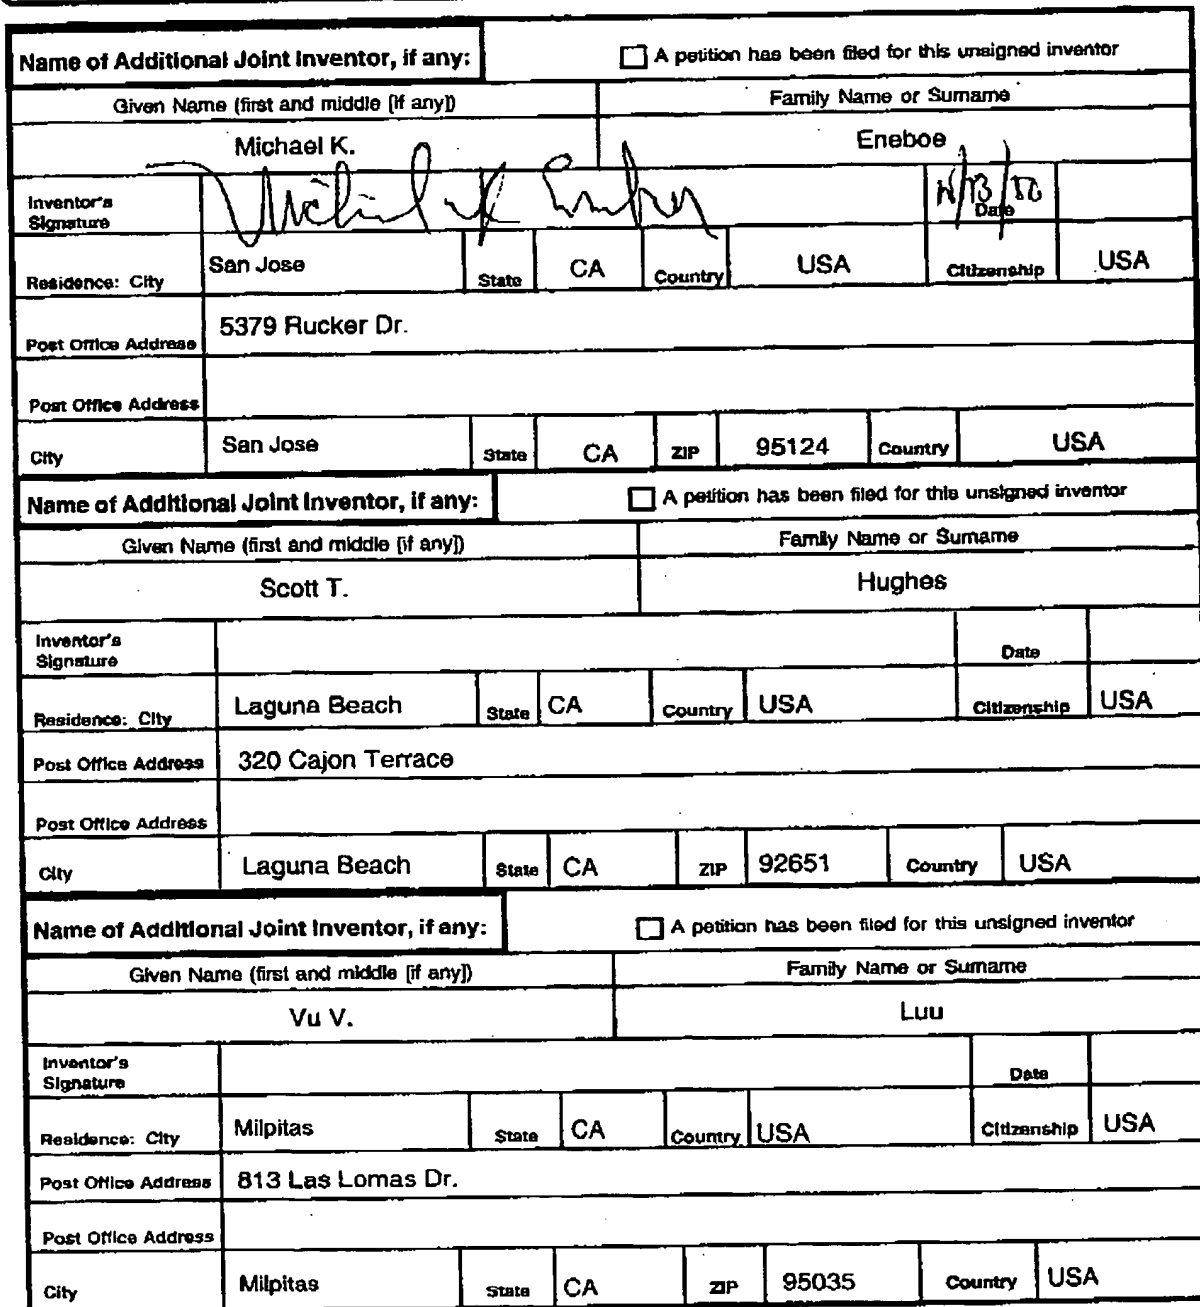 Name of Additional Joint Inventor, if any: A petition has been filed for this unsigned inventor
Given Name (first and middle [if any]) Family Name or Surname
Michael K. Eneboe
Inventor's Signature Date
Residence: City San Jose State CA Country USA Citizenship USA
Post Office Address 5379 Rucker Dr.
Post Office Address
City San Jose State CA ZIP 95124 Country USA
Name of Additional Joint Inventor, if any: A petition has been filed for this unsigned inventor
Given Name (first and middle [if any]) Family Name or Surname
Scott T. Hughes
Inventor's Signature Date
Residence: City Laguna Beach State CA Country USA Citizenship USA
Post Office Address 320 Cajon Terrace
Post Office Address
City Laguna Beach State CA ZIP 92651 Country USA
Name of Additional Joint Inventor, if any: A petition has been filed for this unsigned inventor
Given Name (first and middle [if any]) Family Name or Surname
Vu V. Luu
Inventor's Signature Date
Residence: City Milpitas State CA Country USA Citizenship USA
Post Office Address 813 Las Lomas Dr.
Post Office Address
City Milpitas State CA ZIP 95035 Country USA